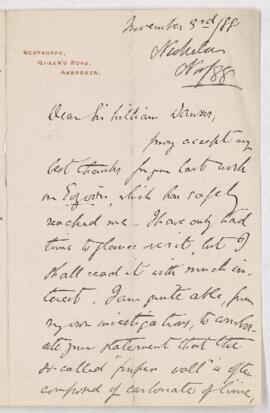 November 3rd/88
Nicholson
Nov/88
NEWTHORPE,
QUEEN'S ROAD,
ABERDEEN.
Dear Sir William Dawson,
pray accept my
best thanks for your last work
on Eozoön, which has safely
reached me. I have only had
time to glance over it, but I
shall read it with much in-
terest. I am quite able, from
my own investigations, to corrobor-
ate your statement that the
so-called "proper wall" is often
composed of carbonate of lime,